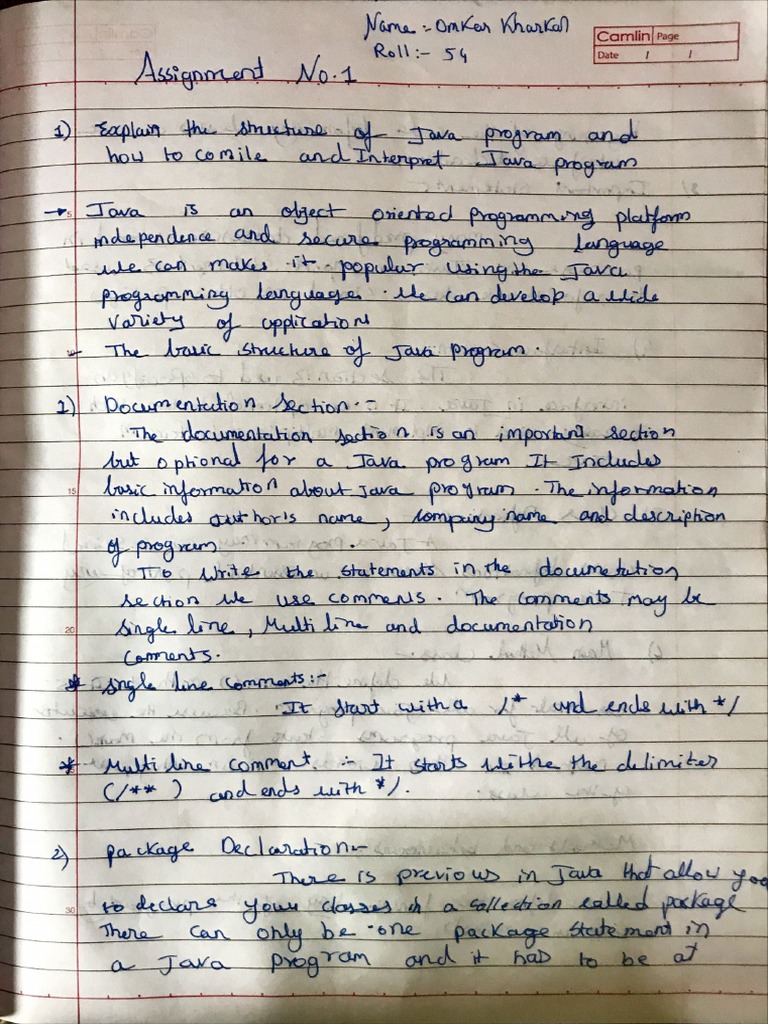 Name :- Omkar Kharkar
Roll:- 54
Camlin Page
Date / /
Assignment No.1
1) Explain the structure of Java program and
how to comile and Interpret Java program
→ Java is an object oriented programming platform
independence and secure programming language
we can makes it popular using the Java
programming language. We can develop a wide
variety of application
- The basic structure of Java program.
1) Documentation section :-
The documentation section is an important section
but optional for a Java program It Includes
basic information about Java program. The information
includes author's name, company name and description
of program.
To write the statements in the documetation
section we use comments. The comments may be
single line, Multi line and documentation
comments.
* single line comments :-
It start with a /* and ends with */
* Multi line comment :- It starts withe the delimiter
(/** ) and ends with */.
2) package Declaration :-
There is previous in Java that allow you
to declare your classes in a collection called package
There can only be one package statement in
a Java program and it had to be at
5
10
15
20
30